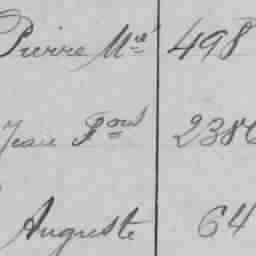 Pierre M^el 498
Jean F^ois 2386
Auguste 64